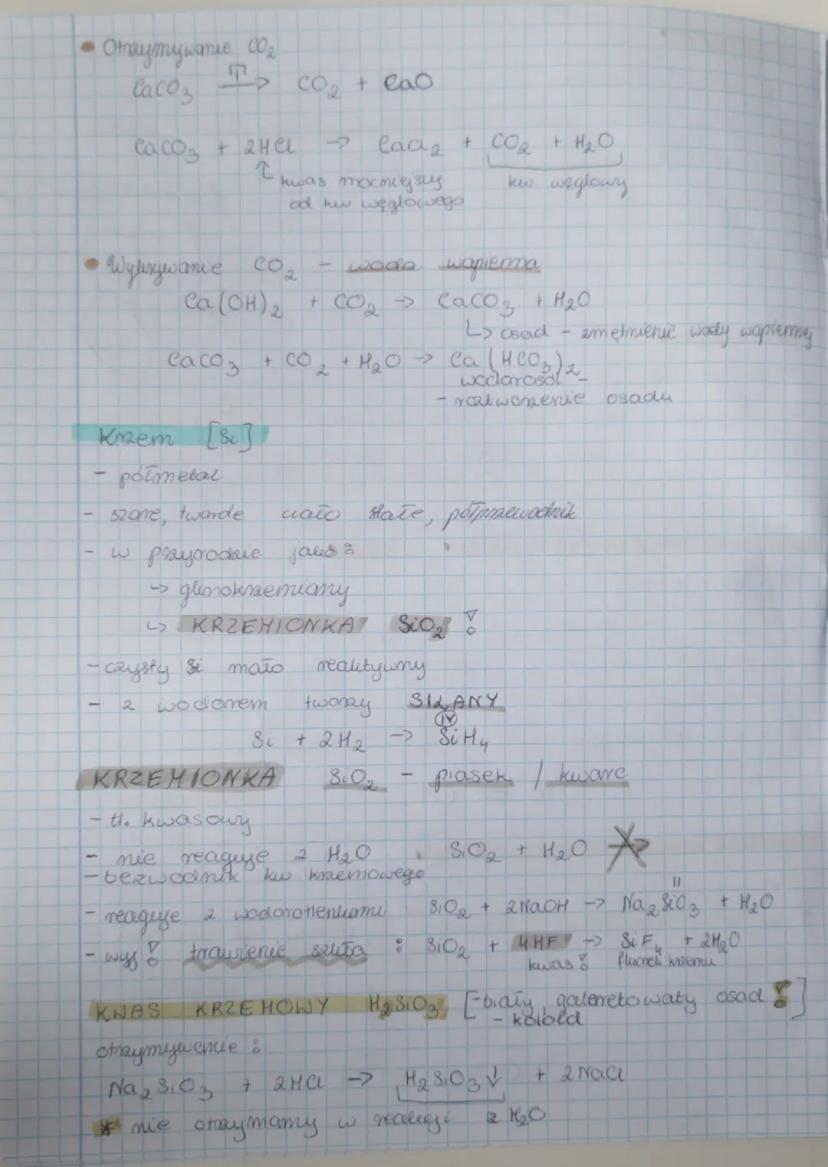 • Otrzymywanie CO₂
CaCO₃ —T→ CO₂ + CaO
CaCO₃ + 2HCl → CaCl₂ + CO₂ + H₂O
↑ kwas mocniejszy kw węglowy
od kw węglowego
• Wykrywanie CO₂ - woda wapienna
Ca(OH)₂ + CO₂ → CaCO₃ + H₂O
↳ osad - zmętnienie wody wapiennej
CaCO₃ + CO₂ + H₂O → Ca(HCO₃)₂
wodorosól -
- roztworzenie osadu
Krzem [Si]
- półmetal
- szare, twarde ciało stałe, półprzewodnik
- w przyrodzie jako:
→ glinokrzemiany
↳ KRZEMIONKA SiO₂ !
- czysty Si mało reaktywny
- z wodorem tworzy SILANY
IV
Si + 2H₂ → SiH₄
KRZEMIONKA SiO₂ - piasek / kwarc
- tl. kwasowy
- nie reaguje z H₂O SiO₂ + H₂O ↛
- bezwodnik kw krzemowego
II
- reaguje z wodorotlenkami SiO₂ + 2NaOH → Na₂SiO₃ + H₂O
- wyj! trawienie szkła : SiO₂ + 4HF → SiF₄ + 2H₂O
kwas! fluorek krzemu
KWAS KRZEMOWY H₂SiO₃ [- biały galaretowaty osad !]
- koloid
otrzymywanie :
Na₂SiO₃ + 2HCl → H₂SiO₃↓ + 2NaCl
* nie otrzymamy w reakcji z H₂O